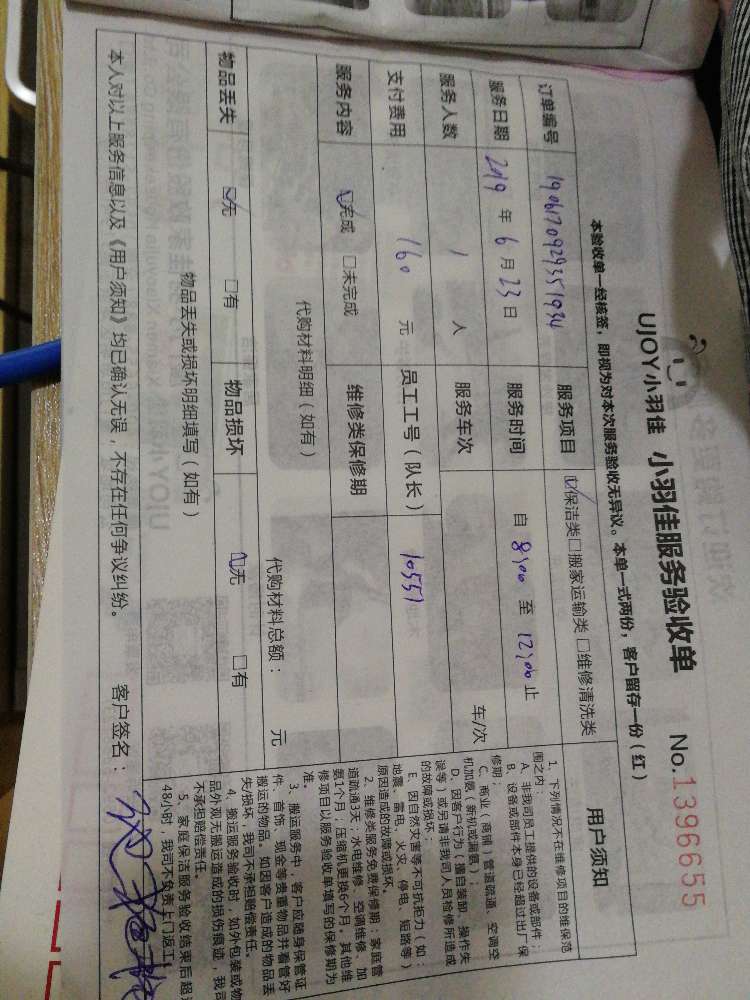 UJOY小羽佳 小羽佳服务验收单 No.1396655
本验收单一经核签，即视为对本次服务验收无异议。本单一式两份，客户留存一份（红）
订单编号 190617092935 1934 服务项目 ☑保洁类□搬家运输类□维修清洗类
服务日期 2019年6月23日 服务时间 自 8:00 至 12:00 止
服务人数 1 人 服务车次 车/次
支付费用 160 元 员工工号（队长） 10551
服务内容 ☑完成 □未完成 维修类保修期
代购材料明细（如有） 代购材料总额： 元
物品丢失 ☑无 □有 物品损坏 ☑无 □有
物品丢失或损坏明细填写（如有）
本人对以上服务信息以及《用户须知》均已确认无误，不存在任何争议纠纷。 客户签名：
用户须知
1、下列情况不在维修项目的维保范
围之内：
A、非我司员工提供的设备或部件；
B、设备或部件本身已经超过出厂保
修期；
C、商业（商铺）管道疏通、空调空
机加氨（新机或漏氨）；
D、因客户行为（擅自装卸、操作失
误等）或另请非我司人员检修所造成
的故障或损坏；
E、因自然灾害等不可抗拒力，如：
地震、雷电、火灾、停电、短路等）
原因造成的故障或损坏。
2、维修类服务免费保修期：家庭管
道疏通3天；水电维修、空调维修、加
氨1个月；压缩机更换6个月。其他维
修项目以服务验收单填写的保修期为
准。
3、搬运服务中，客户应随身保管证
件、首饰、现金等贵重物品并看管好
搬运的物品。如因客户造成的物品丢
失/损坏，我司不承担赔偿责任。
4、搬运服务验收时，如外包装或物
品外观无搬运造成的损伤痕迹，我司
不承担赔偿责任。
5、家庭保洁服务验收结束后超
48小时，我司不负责上门返工